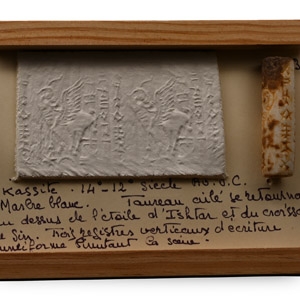 Kassite. 14e-12e Siècle Av. J.C.
Marbre blanc. Taureau ailé se retournant
au dessus de l'étoile d'Ishtar et du croissant
de Sin. Trois registres verticaux d'écriture
cunéiforme limitant la scène.